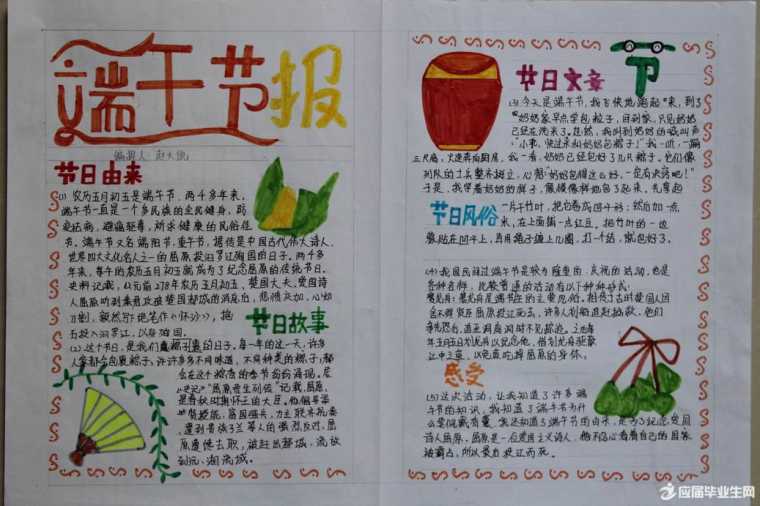 端午节报
编制人:
节日由来
(1) 农历五月初五是端午节,两千多年来,
端午节一直是一个多民族的全民健身,防
疫祛病,避瘟驱毒,祈求健康的民俗佳
节,端午节又名端阳节,重午节,据传是中国古代伟大诗人,
世界四大文化名人之一的屈原投汨罗江殉国的日子。两千多
年来,每年的农历五月初五就成为了纪念屈原的传统节日。
史料记载,公元前278年农历五月初五,楚国大夫,爱国诗
人屈原听到秦军攻破楚国都城的消息后,悲愤交加,心如
刀割,毅然写下绝笔作《怀沙》,抱
石投入汨罗江,以身殉国。
节日故事
(2) 这个日子,是我们
人家都会包裹粽子,许许多多不同味道,不同种类的粽子,都
会在这个粽香的季节纷纷涌现。
史记“屈原贾生列传”记载,屈原,
是春秋时期楚怀王的大臣。他倡导举
贤授能,富国强兵,力主联齐抗秦,
遭到贵族子兰等人的强烈反对,屈
原遭馋去职,被赶出都城,流放
到沅,湘流域。
节
节日文章
(3) 今天是端午节,我飞快地跑起来,到了
奶奶家早点学包粽子,目到家,只见奶奶
已经在洗米了。忽然,我听到奶奶的喊叫声
“小
三尺高,火速奔向厨房,我一看,奶奶已经包好了几只粽子。它们像
列队的士兵整齐挺立,心想:“奶奶包得这么好,一定有决窍吧!”
于是,我学着奶奶的样子,依模像样地包了起来,先拿起
一片干竹叶,把它卷成凹斗形;然后加一点
米,在上面铺一点红豆。把竹叶的一边
紧贴在凹斗上,再用绳子缠上几圈,打个结,就包好了。
节日风俗
(4) 我国民间过端午节是较为隆重的,庆祝的活动,也是
各种各样,比较普遍的活动有以下种种形式:
赛龙舟:赛龙舟是端午节的主要风俗,相传古时楚国人因
舍不得贤臣屈原投江而去,许多人划船追赶拯救,他们
争先恐后,追至洞庭湖时不见踪迹。之后每
年五月五日划龙舟以纪念他,借划龙舟驱散
江中之鱼,以免鱼吃掉屈原的身体。
感受
(5) 这次活动,让我知道了许多端
午节的知识,我知道了端午节为什
么要佩戴香囊,还知道了端午节的由来,是为了纪念爱国
诗人屈原,屈原是一位爱国主义诗人,他不忍心看着自己的国家
被霸占,所以最后投江而死。
应届毕业生网